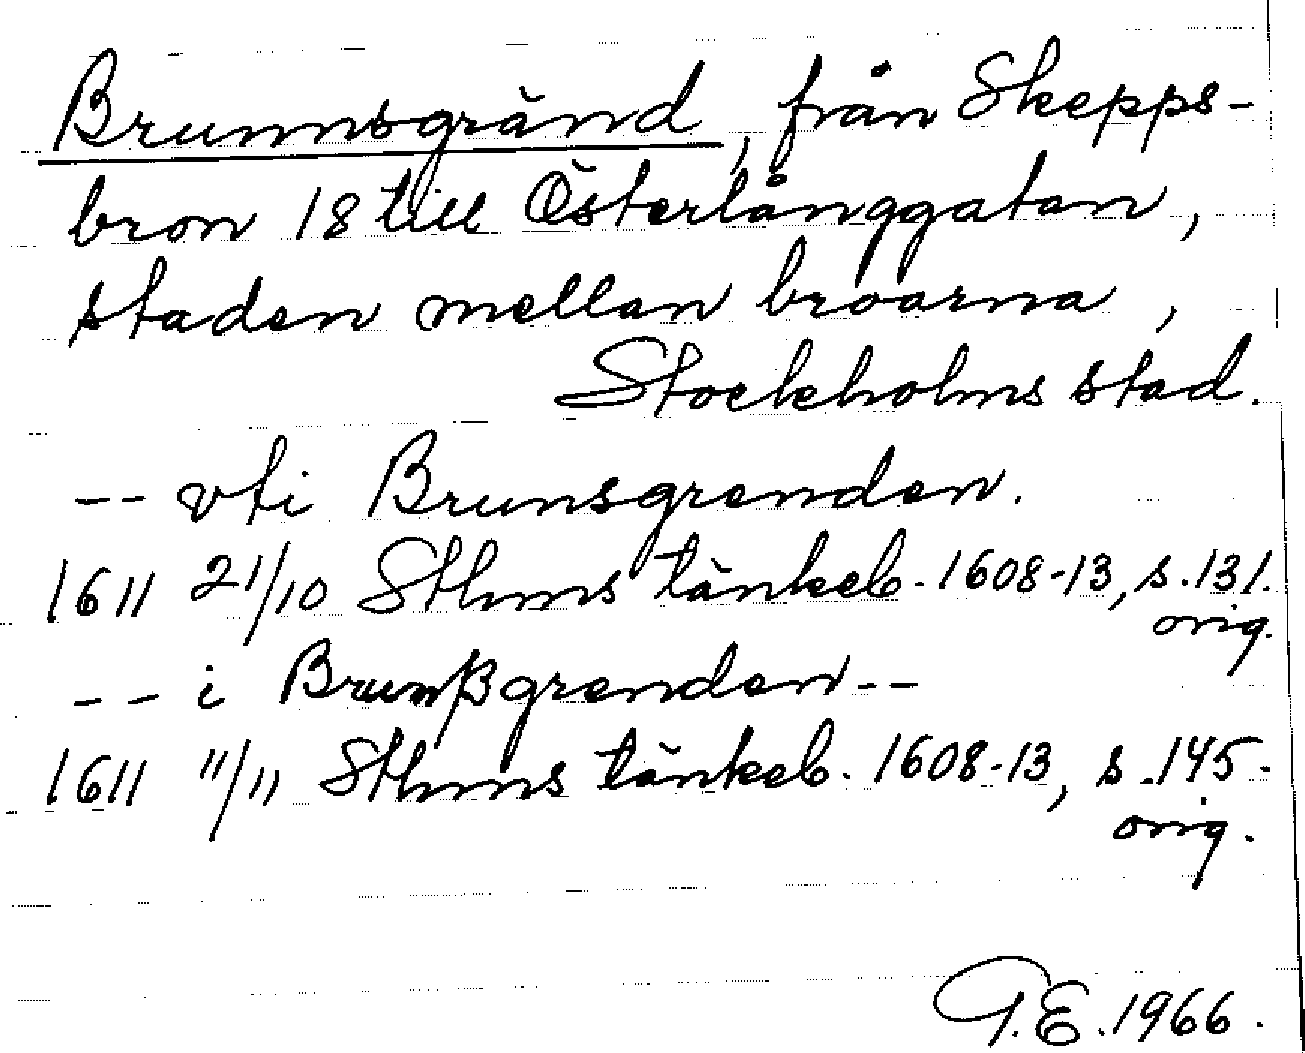 Brunnsgränd, från Skepps-
bron 18 till Österlånggatan,
staden mellan broarna,
Stockholms stad.
-- vti Brunsgrenden.
1611 21/10 Sthms tänkeb. 1608-13, s. 131.
orig.
-- i Brunßgrenden --
1611 11/11 Sthms tänkeb. 1608-13, s. 145.
orig.
G.E. 1966.